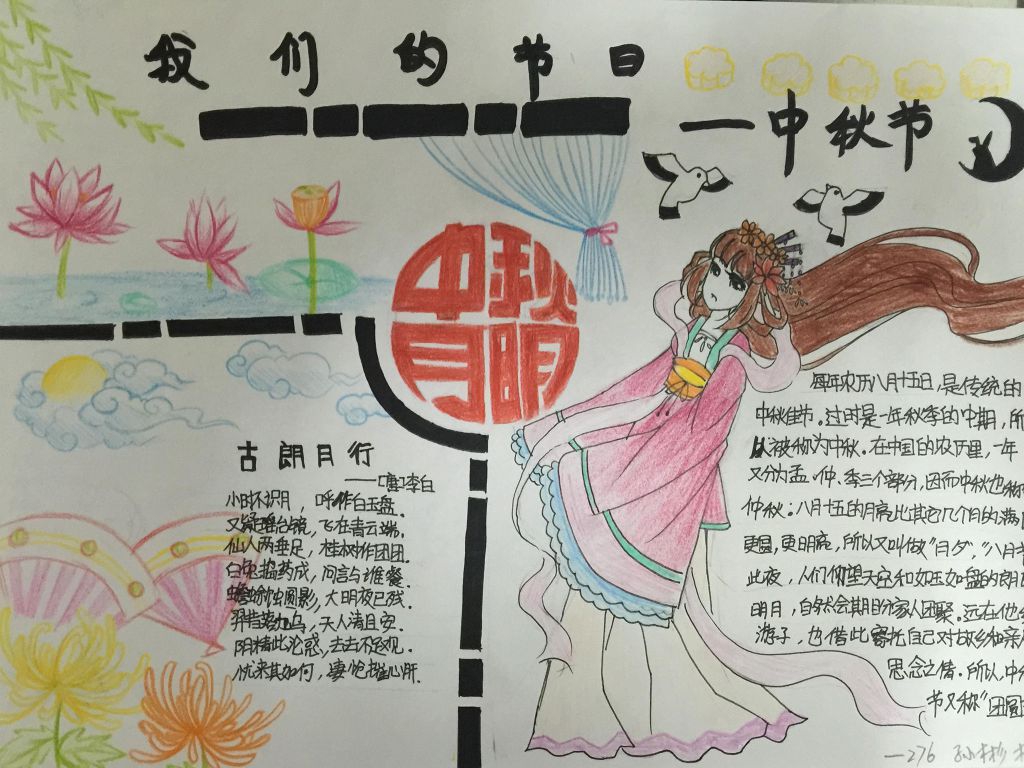 我们的节日
一中秋节
中秋
月明
古朗月行
——[唐]李白
小时不识月，呼作白玉盘.
又疑瑶台镜，飞在青云端.
仙人两垂足，桂树作团团.
白兔捣药成，问言与谁餐.
蟾蜍蚀圆影，大明夜已残.
羿昔落九乌，天人清且安.
阴精此沦惑，去去不足观.
忧来其如何，凄怆摧心肝.
每年农历八月十五日，是传统的
中秋佳节.这时是一年秋季的中期，所
以被称为中秋.在中国的农历里，一年
又分为孟、仲、季三个部分，因而中秋也称
仲秋.八月十五的月亮比其它几个月的满
更圆，更明亮，所以又叫做"月夕"，"八月
此夜，人们仰望天空和如玉如盘的朗
明月，自然会期盼家人团聚.远在他
游子，也借此寄托自己对故乡和亲
思念之情.所以，中
节又称"团圆
—276 孙彬